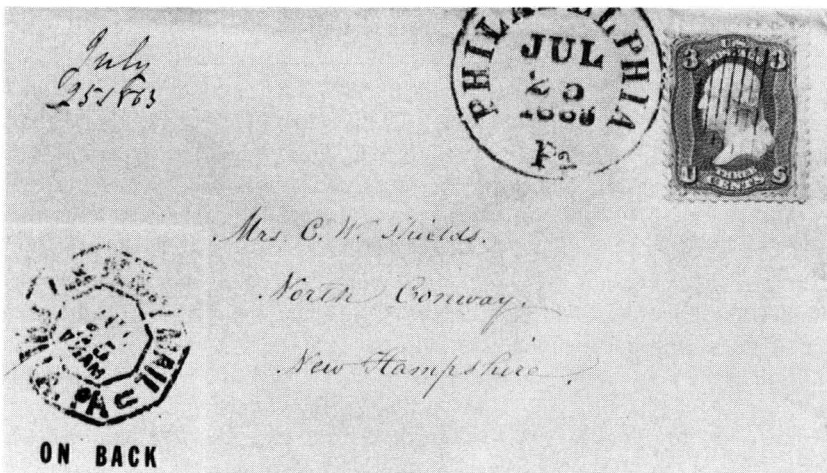 July
25 1863
PHILADELPHIA
JUL
25
1863
Pa
U S
3 3
U S
THREE
CENTS
Mrs. C. W. Shields.
North Conway.
New Hampshire.
MAIL
ON BACK